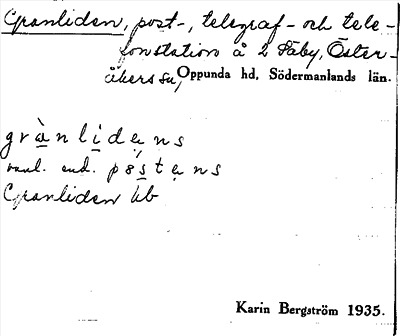 Granliden, post-, telegraf- och tele-
fonstation å 2 Säby, Öster-
åkers sn, Oppunda hd, Södermanlands län.
grànlidens
vanl. end. påstens
Granliden kb
Karin Bergström 1935.